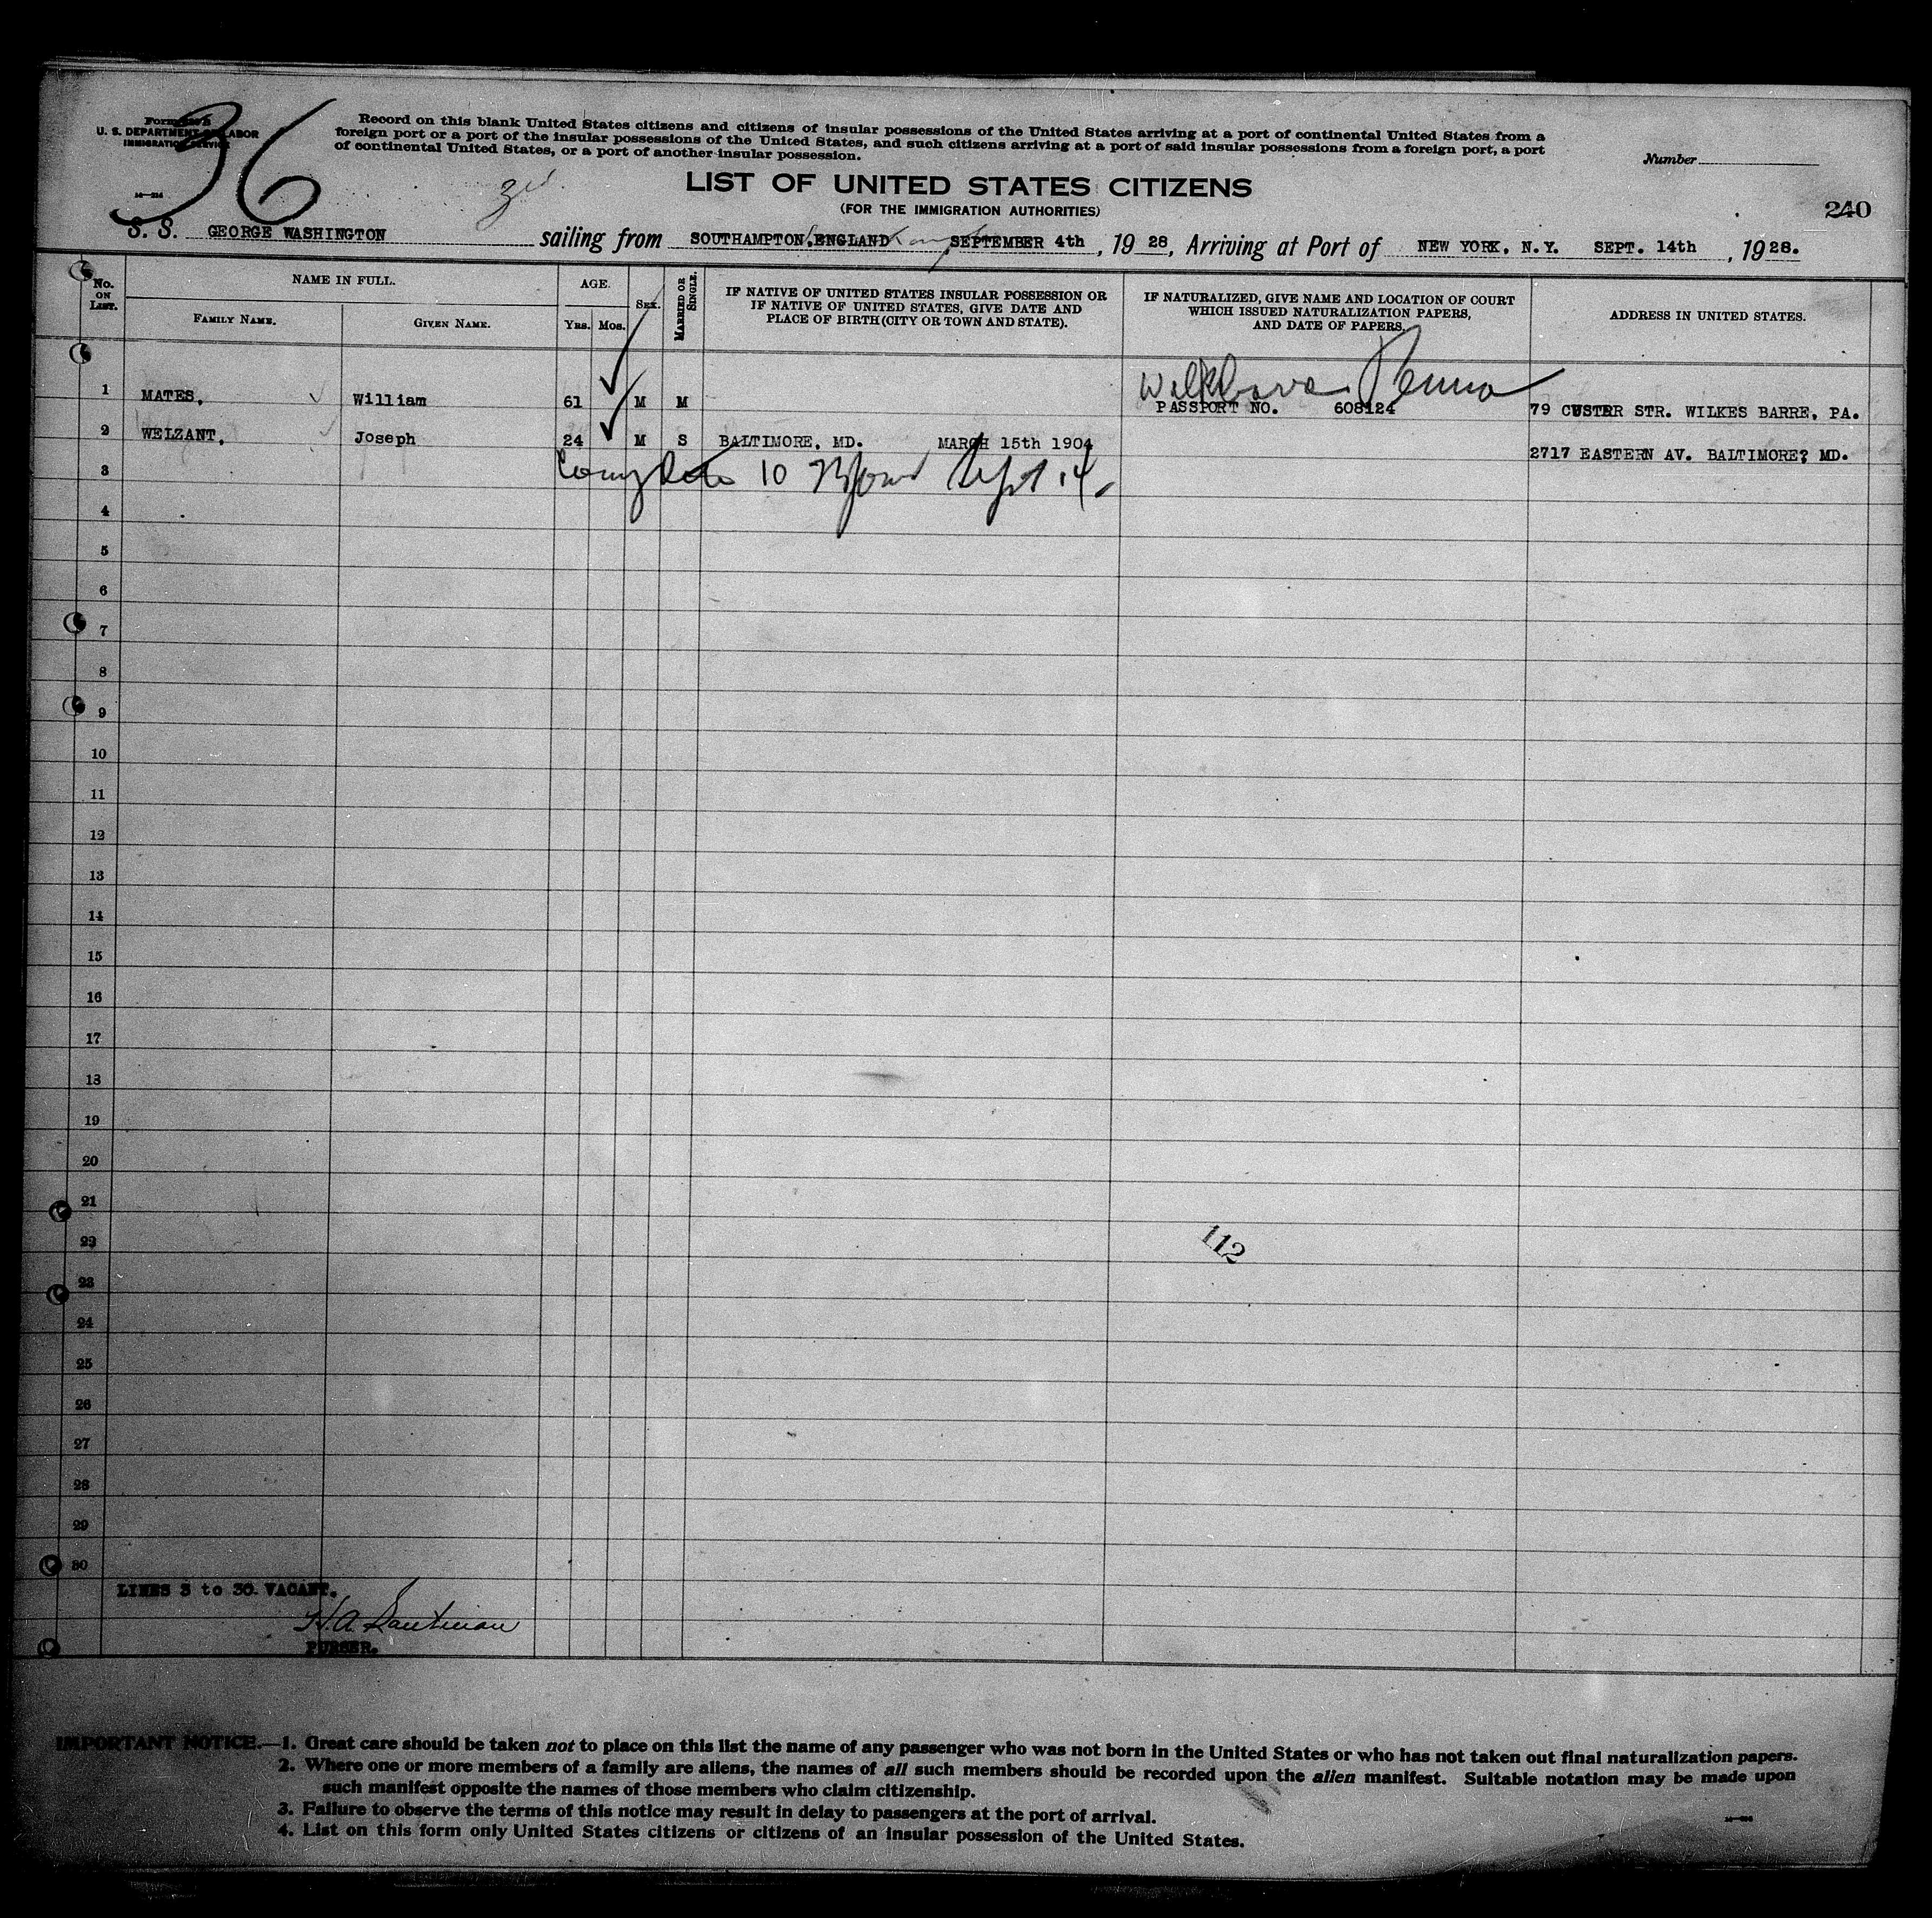 36
Form
U. S. DEPARTMENT OF LABOR
IMMIGRATION SERVICE
Record on this blank United States citizens and citizens of insular possessions of the United States arriving at a port of continental United States from a
foreign port or a port of the insular possessions of the United States, and such citizens arriving at a port of said insular possessions from a foreign port, a port
of continental United States, or a port of another insular possession.
Number
3rd
LIST OF UNITED STATES CITIZENS
(FOR THE IMMIGRATION AUTHORITIES)
240
S. S. GEORGE WASHINGTON sailing from SOUTHAMPTON, ENGLAND SEPTEMBER 4th, 1928, Arriving at Port of NEW YORK, N.Y. SEPT. 14th, 1928.
No. ON LIST.
NAME IN FULL.
FAMILY NAME.
GIVEN NAME.
AGE.
YRS. MOS.
SEX.
MARRIED OR SINGLE.
IF NATIVE OF UNITED STATES INSULAR POSSESSION OR
IF NATIVE OF UNITED STATES, GIVE DATE AND
PLACE OF BIRTH (CITY OR TOWN AND STATE).
IF NATURALIZED, GIVE NAME AND LOCATION OF COURT
WHICH ISSUED NATURALIZATION PAPERS,
AND DATE OF PAPERS.
ADDRESS IN UNITED STATES.
Penna
1 MATES, William 61 M M PASSPORT NO. 608124 79 CUSTER STR. WILKES BARRE, PA.
2 WELZANT, Joseph 24 M S BALTIMORE, MD. MARCH 15th 1904 2717 EASTERN AV. BALTIMORE? MD.
3 10 Sept 14
4
5
6
7
8
9
10
11
12
13
14
15
16
17
18
19
20
21
22
23
24
25
26
27
28
29
30
112
LINES 3 to 30 VACANT.
H.A.
PURSER.
IMPORTANT NOTICE.—1. Great care should be taken not to place on this list the name of any passenger who was not born in the United States or who has not taken out final naturalization papers.
2. Where one or more members of a family are aliens, the names of all such members should be recorded upon the alien manifest. Suitable notation may be made upon
such manifest opposite the names of those members who claim citizenship.
3. Failure to observe the terms of this notice may result in delay to passengers at the port of arrival.
4. List on this form only United States citizens or citizens of an insular possession of the United States.